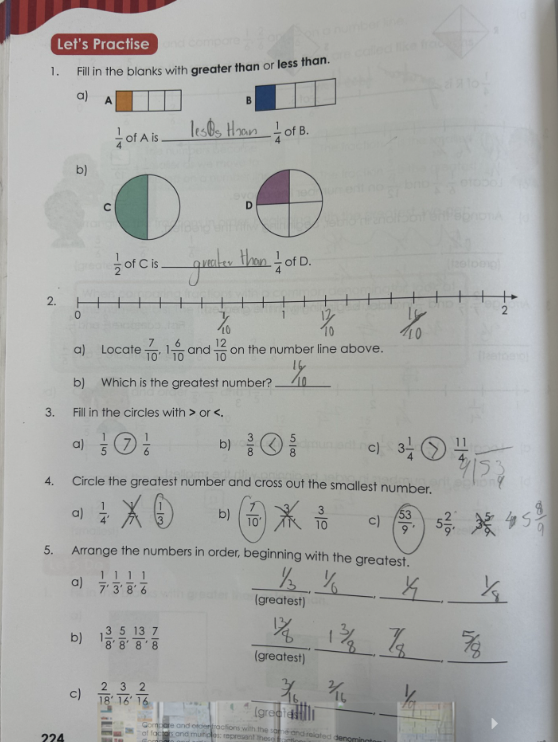 Let's Practise
1. Fill in the blanks with greater than or less than.
a) A B
1/4 of A is less than 1/4 of B.
b)
C D
1/2 of C is greater than 1/4 of D.
2. 0 7/10 1 12/10 16/10 2
a) Locate 7/10, 1 6/10 and 12/10 on the number line above.
b) Which is the greatest number? 16/10
3. Fill in the circles with > or <.
a) 1/5 > 1/6 b) 3/8 < 5/8 c) 3 1/4 > 11/4
4. Circle the greatest number and cross out the smallest number.
a) 1/4, 1/7, 1/3 b) 7/10, 3/11, 3/10 c) 53/9, 5 2/9, 5 8/9
5. Arrange the numbers in order, beginning with the greatest.
a) 1/7, 1/3, 1/8, 1/6 1/3, 1/6, 1/7, 1/8
(greatest)
b) 1 3/8, 5/8, 13/8, 7/8 13/8, 1 3/8, 7/8, 5/8
(greatest)
c) 2/18, 3/16, 2/16 3/16, 2/16,
224